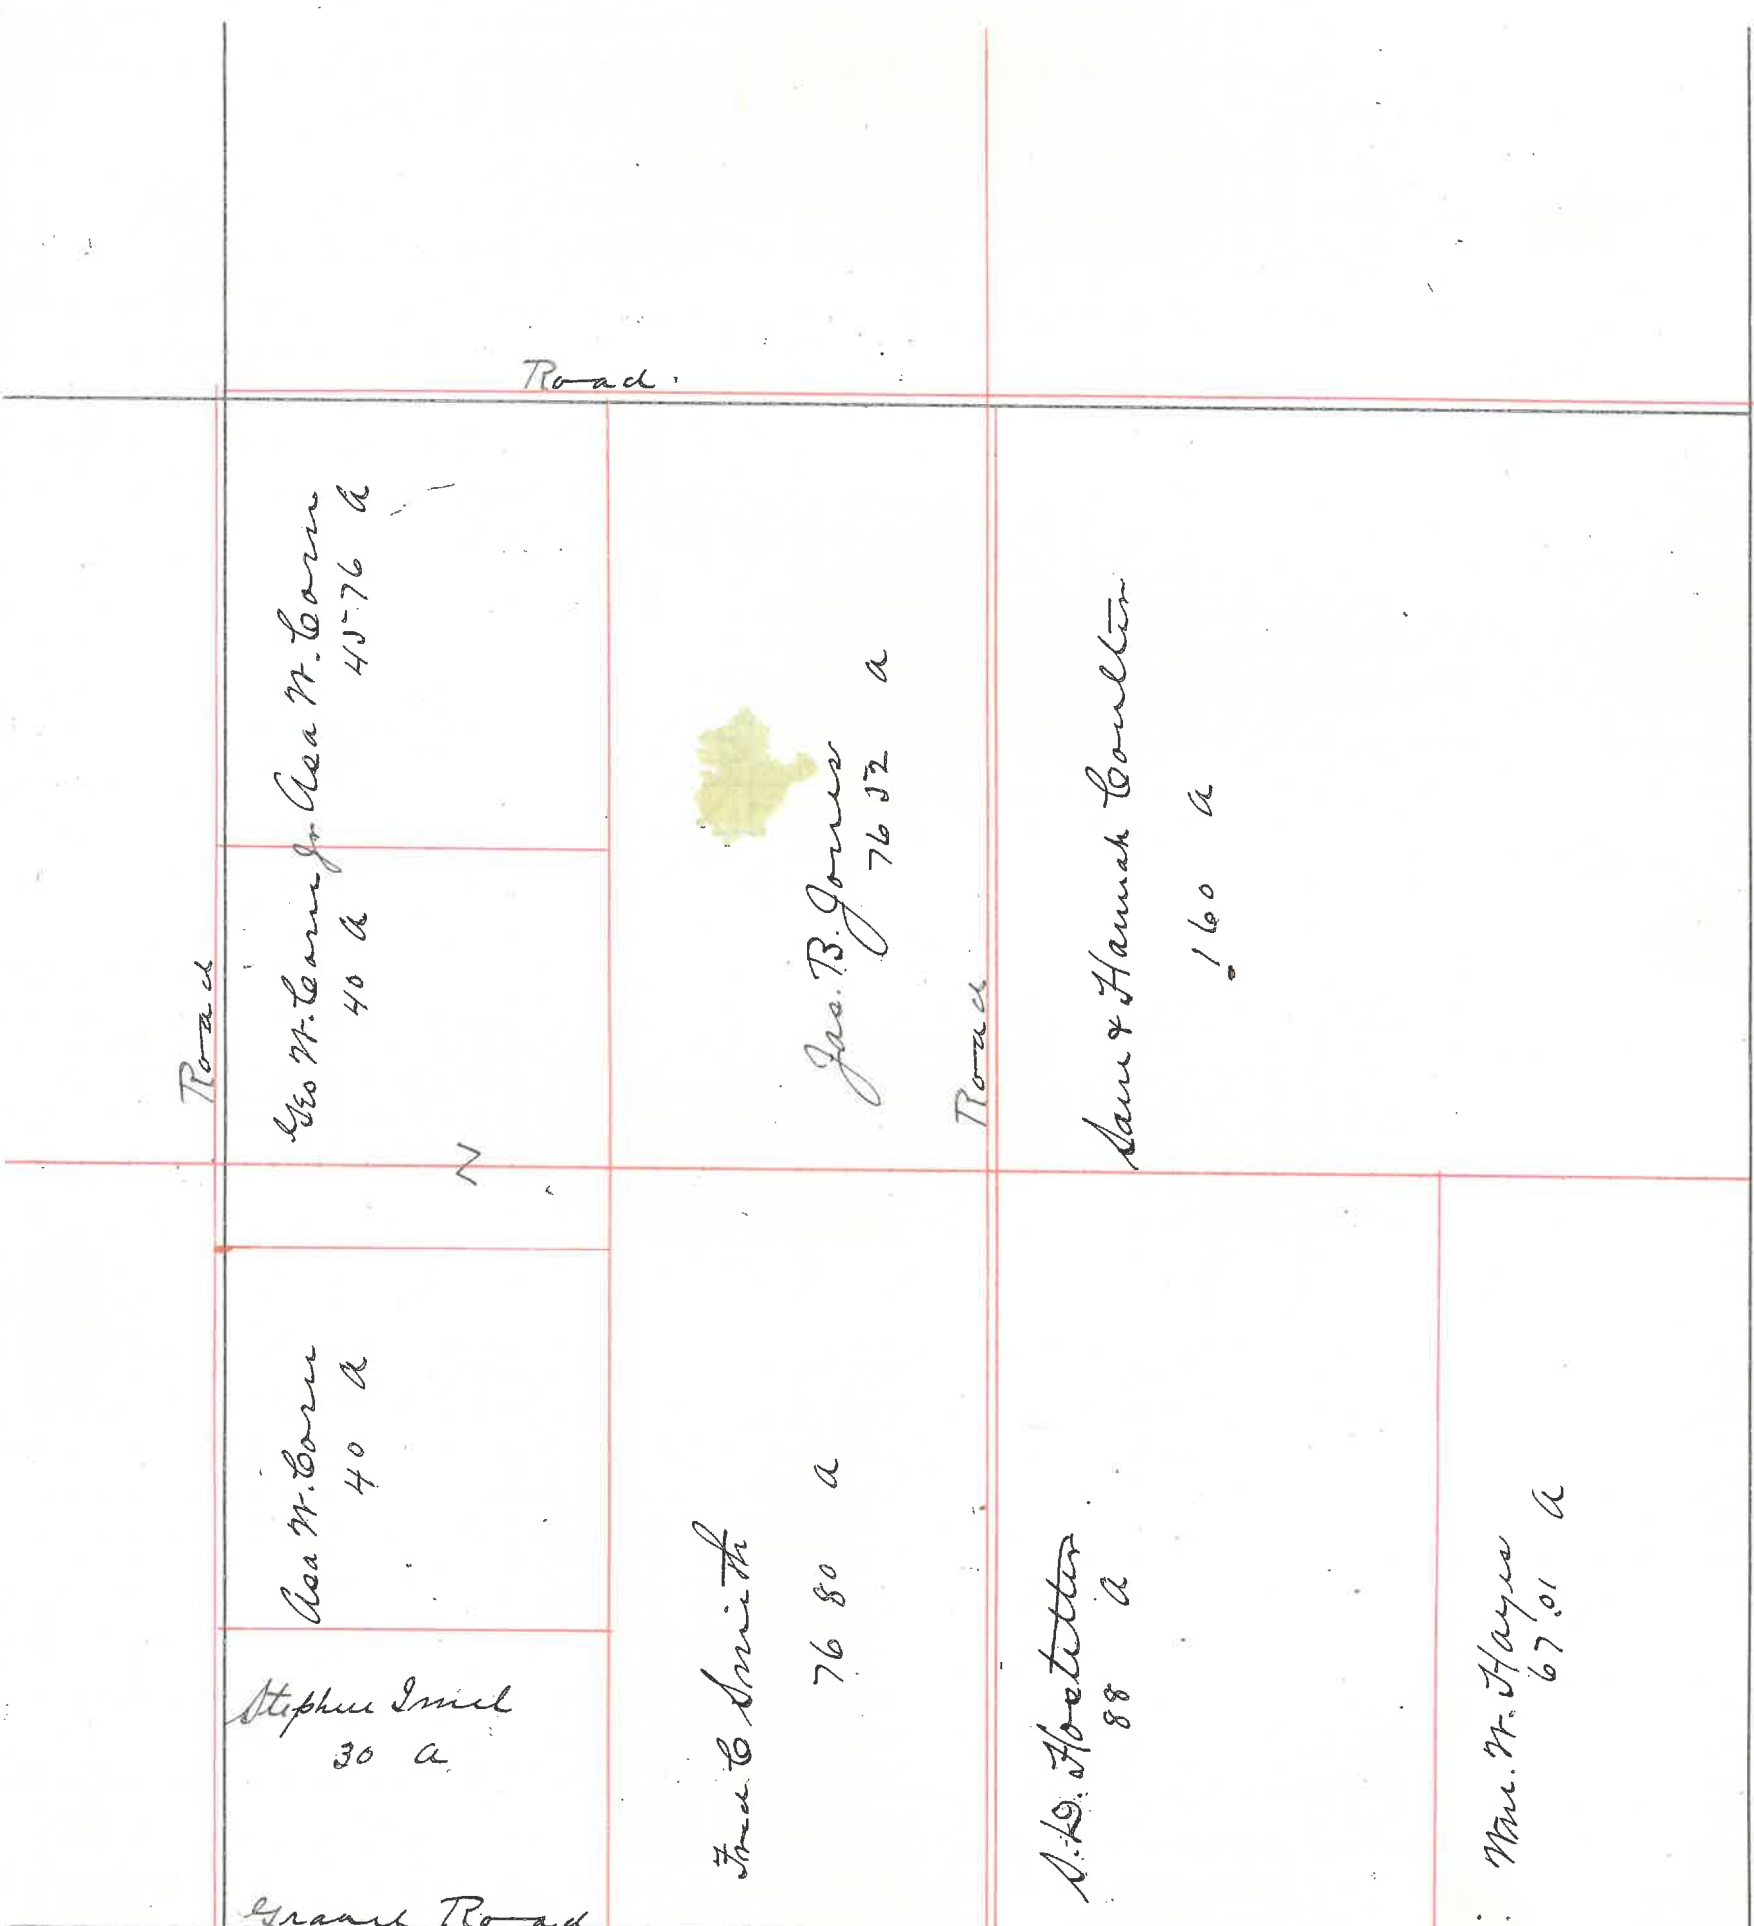 Road.
Asa W. Corn
45 76 a
Geo W. Corn Jr
40 a
Road
Jas. B. Jones
76 52 a
Road
Sam & Hannah Coulter
160 a
N
Asa W. Corn
40 a
Stephen Imel
30 a
Fred C Smith
76 80 a
S. D. Hostetter
88 a
Wm. W. Hayes
67.01 a
Gravel Road